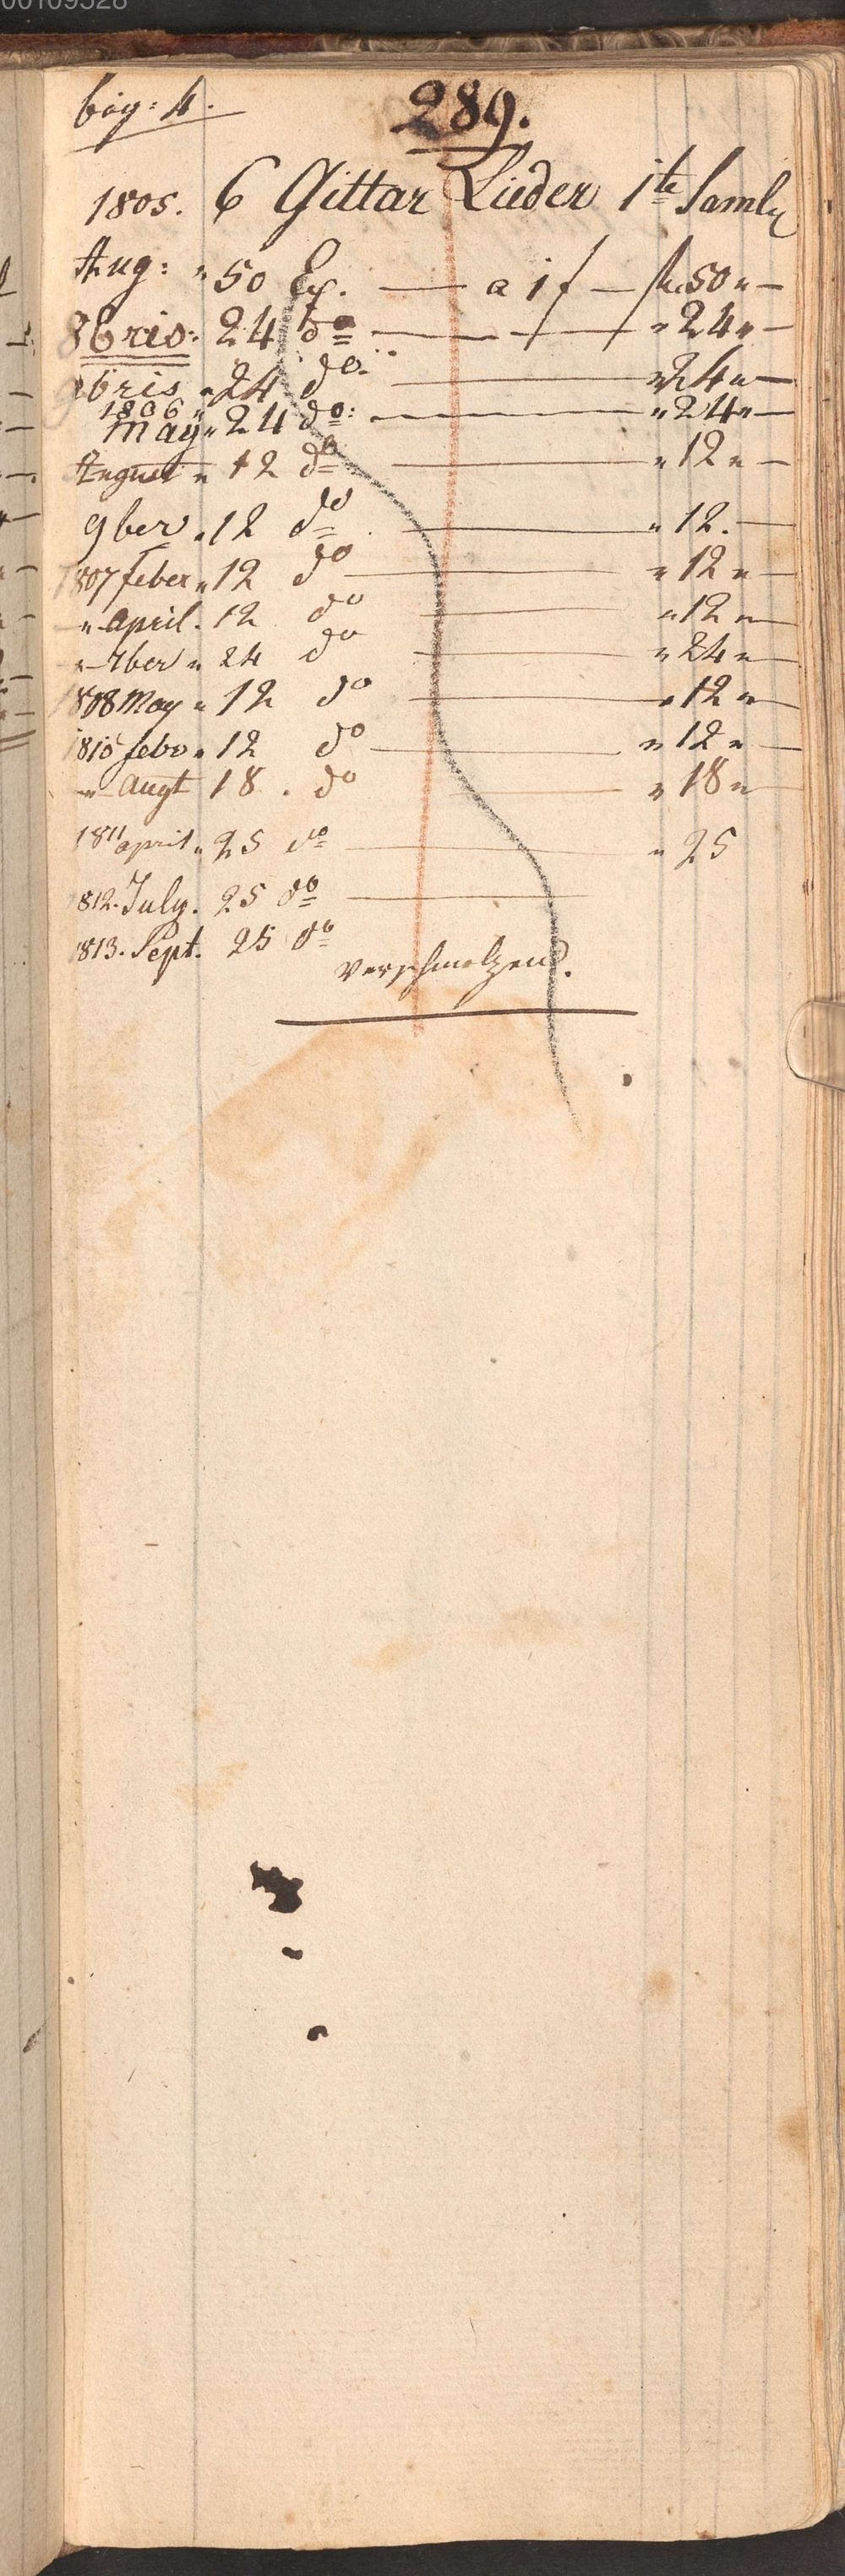 00109528
bög: 4.
289.
1805. 6 Gittar Lieder 1te Samlg
Aug: " 50 Ex. — a 1 f — f 50 " —
8bris: 24 do — " 24 " —
9bris " 24 do — " 24 " —
1806
May " 24 do: — " 24 " —
August " 12 do — " 12 " —
9ber " 12 do — " 12. —
1807 feber " 12 do — " 12 " —
" april. 12 do — " 12 " —
" 7ber " 24 do — " 24 " —
1808 May " 12 do — " 12 " —
1810 febr " 12 do — " 12 " —
" augt 18. do — " 18 "
1811 april " 25 do — " 25
1812. July. 25 do —
1813. Sept. 25 do
Verschmolzen.